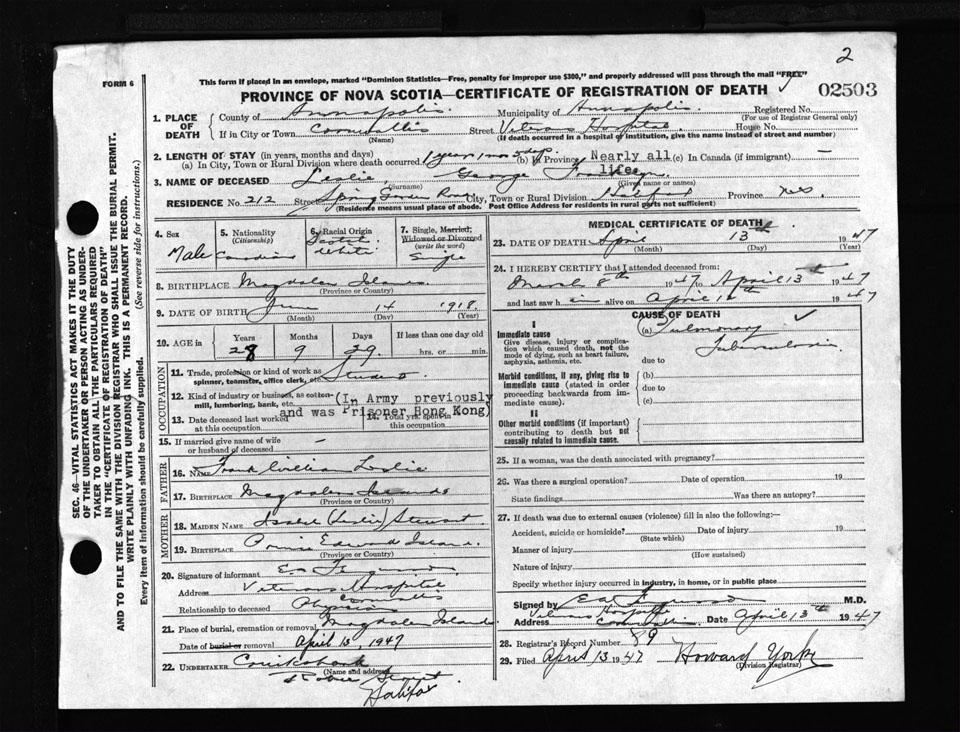 2
FORM 6
This form if placed in an envelope, marked "Dominion Statistics—Free, penalty for improper use $300," and properly addressed will pass through the mail "FREE"
PROVINCE OF NOVA SCOTIA—CERTIFICATE OF REGISTRATION OF DEATH
02503
1. PLACE OF DEATH
County of Annapolis. Municipality of Annapolis. Registered No.
(For use of Registrar General only)
If in City or Town Cornwallis Street Veterans Hospital. House No.
(Name) (If death occurred in a hospital or institution, give the name instead of street and number)
2. LENGTH OF STAY (in years, months and days)
(a) In City, Town or Rural Division where death occurred 1 year 1 mo (b) In Province Nearly all life (c) In Canada (if immigrant) —
3. NAME OF DECEASED Leslie, George
(Surname) (Given name or names)
RESIDENCE No. 212 Street Spring Garden Road City, Town or Rural Division Halifax Province N.S.
(Residence means usual place of abode. Post Office Address for residents in rural parts not sufficient)
4. Sex Male
5. Nationality (Citizenship) Canadian
6. Racial Origin Scotch White
7. Single, Married, Widowed or Divorced (write the word) Single
8. BIRTHPLACE Magdalen Islands.
(Province or Country)
9. DATE OF BIRTH June 14 1918.
(Month) (Day) (Year)
10. AGE in Years 28 Months 9 Days 29. If less than one day old hrs. or min.
OCCUPATION
11. Trade, profession or kind of work as spinner, teamster, office clerk, etc. Student.
12. Kind of industry or business, as cotton-mill, lumbering, bank, etc. (In Army previously
and was Prisoner Hong Kong)
13. Date deceased last worked at this occupation
14. Total yrs. spent in this occupation
15. If married give name of wife or husband of deceased —
FATHER
16. NAME Frank William Leslie
17. BIRTHPLACE Magdalen Islands
(Province or Country)
MOTHER
18. MAIDEN NAME (Leslie) Stewart
19. BIRTHPLACE Prince Edward Island.
(Province or Country)
20. Signature of informant
Address Veterans Hospital Cornwallis
Relationship to deceased Physician
21. Place of burial, cremation or removal Magdalen Islands
Date of burial or removal April 13, 1947
22. UNDERTAKER Cruikshank
(Name and address)
Robie Street
Halifax
MEDICAL CERTIFICATE OF DEATH
23. DATE OF DEATH April 13th 1947
(Month) (Day) (Year)
24. I HEREBY CERTIFY that I attended deceased from:
March 8th 1947 to April 13th 1947
and last saw him alive on April 1 th 1947
CAUSE OF DEATH
I
Immediate cause
Give disease, injury or complication which caused death, not the mode of dying, such as heart failure, asphyxia, asthenia, etc.
(a) Pulmonary
Tuberculosis
due to
Morbid conditions, if any, giving rise to immediate cause (stated in order proceeding backwards from immediate cause).
(b)
due to
(c)
II
Other morbid conditions (if important) contributing to death but not causally related to immediate cause.
25. If a woman, was the death associated with pregnancy?
26. Was there a surgical operation? Date of operation 19
State findings Was there an autopsy?
27. If death was due to external causes (violence) fill in also the following:—
Accident, suicide or homicide? Date of injury 19
(State which)
Manner of injury
(How sustained)
Nature of injury
Specify whether injury occurred in industry, in home, or in public place
Signed by M.D.
Address Veterans Hospital Cornwallis Date April 13th 1947
28. Registrar's Record Number 89
29. Filed April 13 1947 Howard Yorke
(Division Registrar)
SEC. 46—VITAL STATISTICS ACT MAKES IT THE DUTY
OF THE UNDERTAKER OR PERSON ACTING AS UNDER-
TAKER TO OBTAIN ALL THE PARTICULARS REQUIRED
IN THE "CERTIFICATE OF REGISTRATION OF DEATH"
AND TO FILE THE SAME WITH THE DIVISION REGISTRAR WHO SHALL ISSUE THE BURIAL PERMIT.
WRITE PLAINLY WITH UNFADING INK. THIS IS A PERMANENT RECORD.
Every item of information should be carefully supplied. (See reverse side for instructions.)